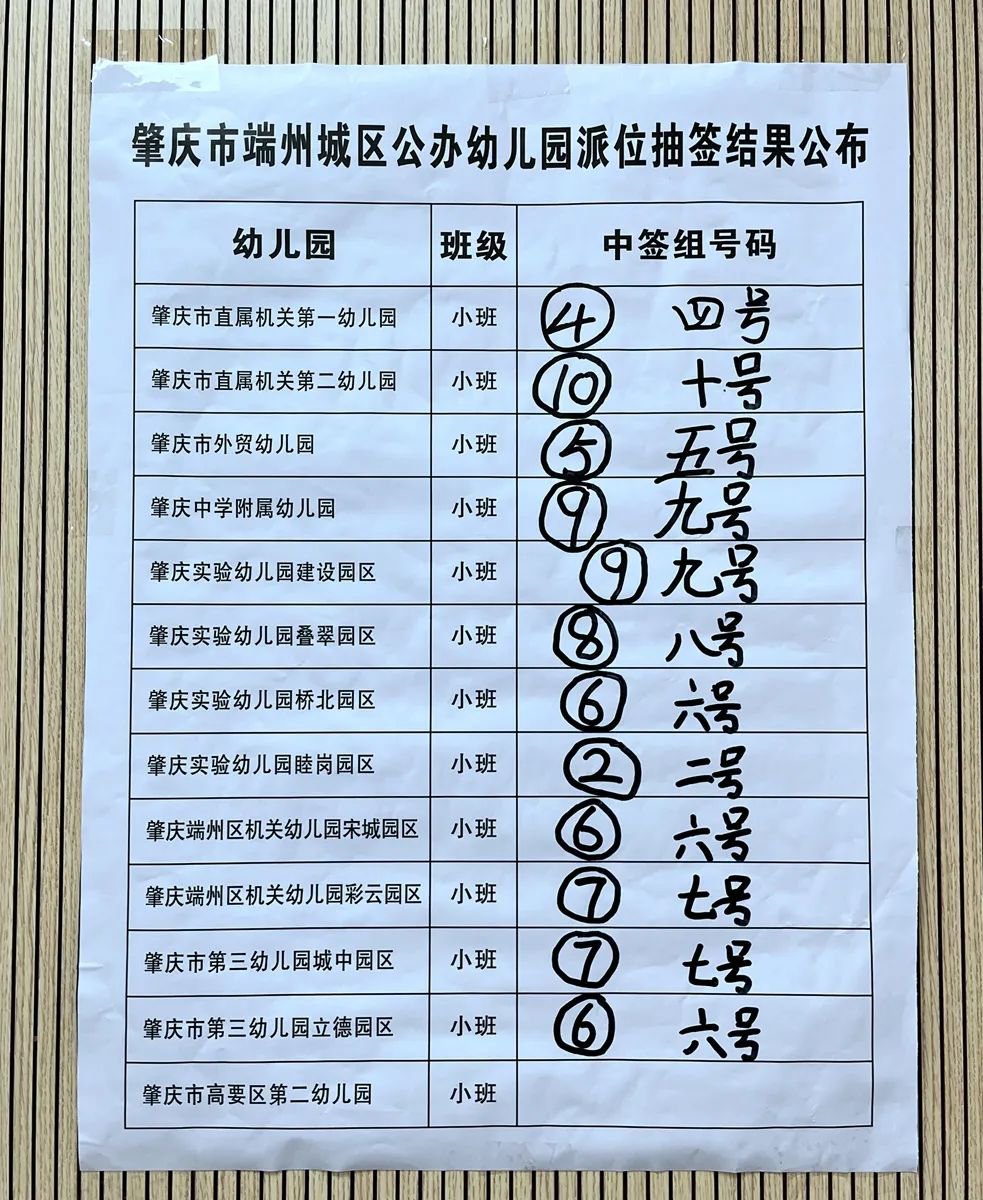 肇庆市端州城区公办幼儿园派位抽签结果公布
幼儿园 班级 中签组号码
肇庆市直属机关第一幼儿园 小班 ④ 四号
肇庆市直属机关第二幼儿园 小班 ⑩ 十号
肇庆市外贸幼儿园 小班 ⑤ 五号
肇庆中学附属幼儿园 小班 ⑨ 九号
肇庆实验幼儿园建设园区 小班 ⑨ 九号
肇庆实验幼儿园叠翠园区 小班 ⑧ 八号
肇庆实验幼儿园桥北园区 小班 ⑥ 六号
肇庆实验幼儿园睦岗园区 小班 ② 二号
肇庆端州区机关幼儿园宋城园区 小班 ⑥ 六号
肇庆端州区机关幼儿园彩云园区 小班 ⑦ 七号
肇庆市第三幼儿园城中园区 小班 ⑦ 七号
肇庆市第三幼儿园立德园区 小班 ⑥ 六号
肇庆市高要区第二幼儿园 小班